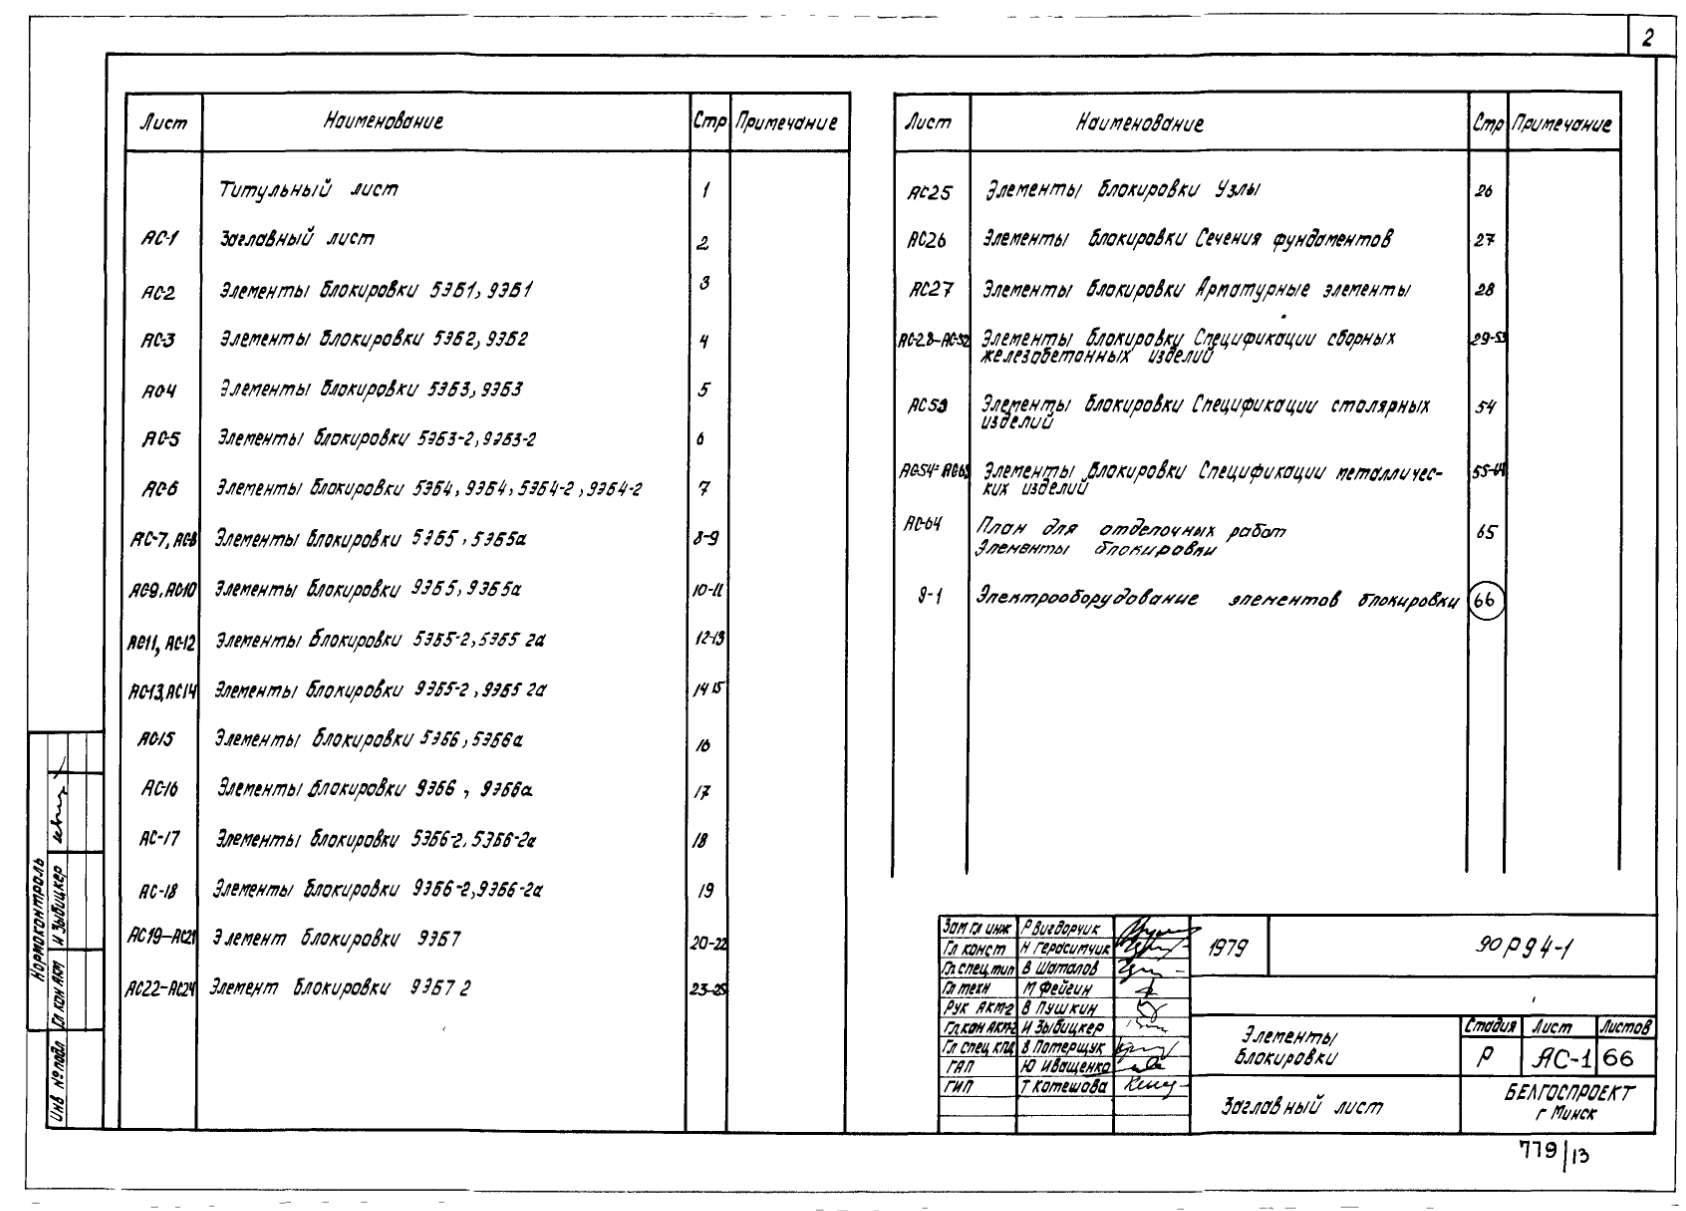 2
Лист Наименование Стр Примечание
Титульный лист 1
АС-1 Заглавный лист 2
АС-2 Элементы блокировки 5ЭБ1, 9ЭБ1 3
АС-3 Элементы блокировки 5ЭБ2, 9ЭБ2 4
АС-4 Элементы блокировки 5ЭБ3, 9ЭБ3 5
АС-5 Элементы блокировки 5ЭБ3-2, 9ЭБ3-2 6
АС-6 Элементы блокировки 5ЭБ4, 9ЭБ4, 5ЭБ4-2, 9ЭБ4-2 7
АС-7, АС-8 Элементы блокировки 5ЭБ5, 5ЭБ5а 8-9
АС-9, АС-10 Элементы блокировки 9ЭБ5, 9ЭБ5а 10-11
АС-11, АС-12 Элементы блокировки 5ЭБ5-2, 5ЭБ5 2а 12-13
АС-13, АС-14 Элементы блокировки 9ЭБ5-2, 9ЭБ5 2а 14 15
АС-15 Элементы блокировки 5ЭБ6, 5ЭБ6а 16
АС-16 Элементы блокировки 9ЭБ6, 9ЭБ6а 17
АС-17 Элементы блокировки 5ЭБ6-2, 5ЭБ6-2а 18
АС-18 Элементы блокировки 9ЭБ6-2, 9ЭБ6-2а 19
АС19-АС21 Элемент блокировки 9ЭБ7 20-22
АС22-АС24 Элемент блокировки 9ЭБ7 2 23-25
Лист Наименование Стр Примечание
АС25 Элементы блокировки Узлы 26
АС26 Элементы блокировки Сечения фундаментов 27
АС27 Элементы блокировки Арматурные элементы 28
АС-28-АС-52 Элементы блокировки Спецификации сборных 29-53
железобетонных изделий
АС53 Элементы блокировки Спецификации столярных 54
изделий
АС-54-АС63 Элементы блокировки Спецификации металличес- 55-64
ких изделий
АС-64 План для отделочных работ 65
Элементы блокировки
Э-1 Электрооборудование элементов блокировки 66
Нормоконтроль
Гл кон АКМ И Зыбицкер
Инв № подл
Зам гл инж Р Вигдорчик
Гл конст Н Герасимчик
Гл спец мип В Шаталов
Гл техн М Фейгин
Рук АКМ-2 В Пушкин
Гл кон АКМ-2 И Зыбицкер
Гл спец КПД В Потерщук
ГАП Ю Иващенко
ГИП Т Котешова
1979 90Р94-1
Элементы
блокировки
Стадия Лист Листов
Р АС-1 66
Заглавный лист
БЕЛГОСПРОЕКТ
г Минск
779/13